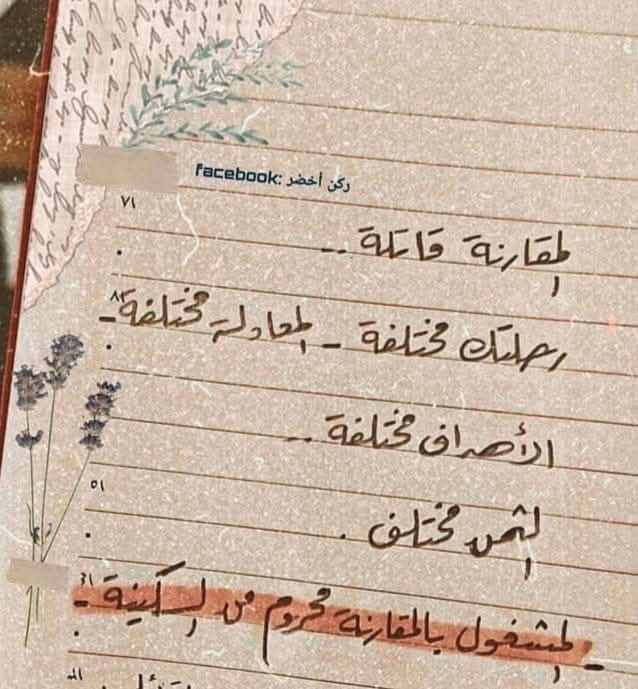 facebook: ركن أخضر
٧١
المقارنة قاتلة ..
رحلتك مختلفة - المعادلة مختلفة -
الأهداف مختلفة ..
٥١
الثمن مختلف .
- المشغول بالمقارنة محروم من السكينة -